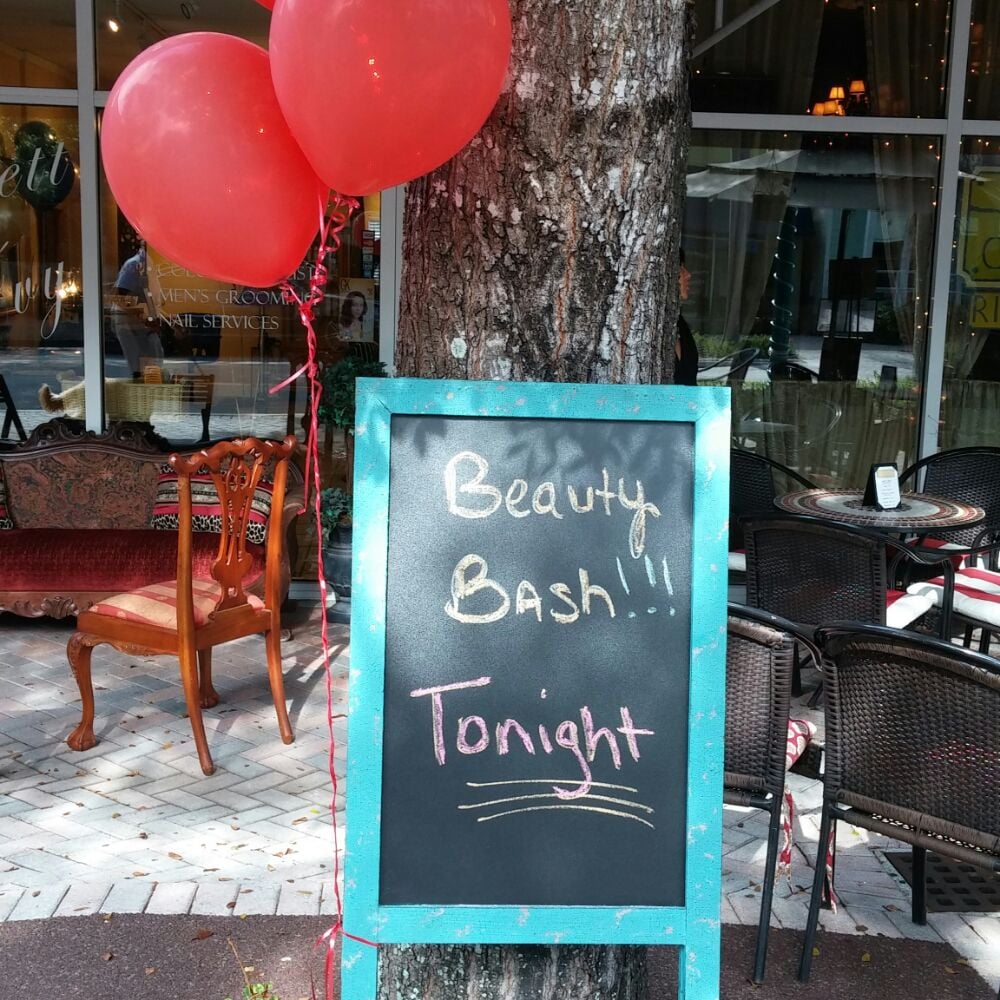 ett
vy
MEN'S GROOMING
NAIL SERVICES
Beauty
Bash!!!
Tonight